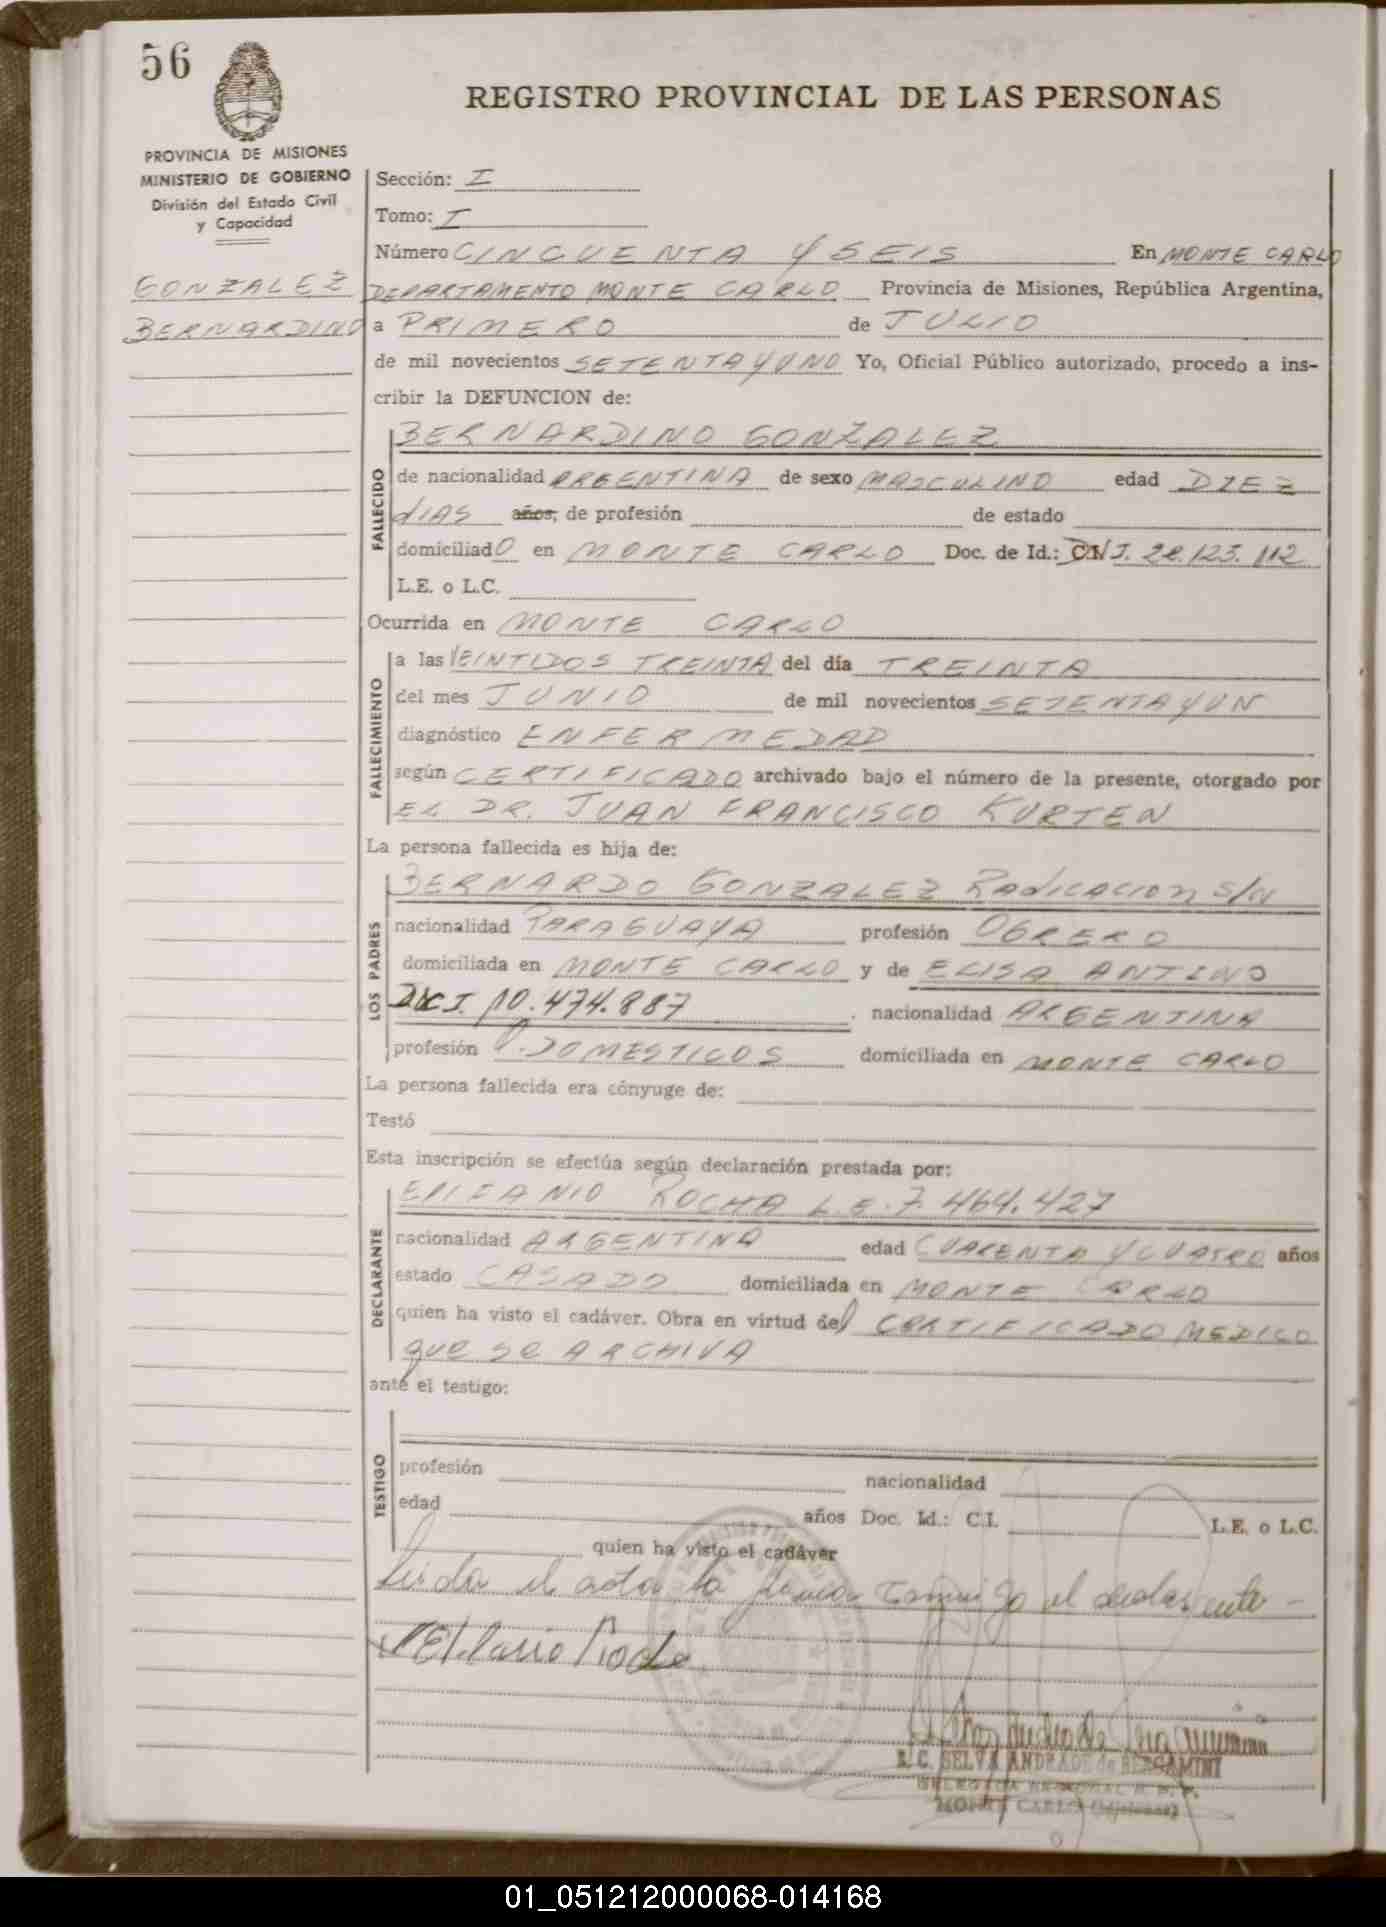 56
REGISTRO PROVINCIAL DE LAS PERSONAS
PROVINCIA DE MISIONES
MINISTERIO DE GOBIERNO
División del Estado Civil
y Capacidad
GONZALEZ
BERNARDINO
Sección: I
Tomo: I
Número CINCUENTA Y SEIS En MONTE CARLO
DEPARTAMENTO MONTE CARLO Provincia de Misiones, República Argentina,
a PRIMERO de JULIO
de mil novecientos SETENTA Y UNO Yo, Oficial Público autorizado, procedo a ins-
cribir la DEFUNCION de:
FALLECIDO
BERNARDINO GONZALEZ
de nacionalidad ARGENTINA de sexo MASCULINO edad DIEZ
dIAS años, de profesión de estado
domiciliadO en MONTE CARLO Doc. de Id.: 22.123.112
L.E. o L.C.
Ocurrida en MONTE CARLO
FALLECIMIENTO
a las VEINTIDOS TREINTA del día TREINTA
del mes JUNIO de mil novecientos SETENTA Y UN
diagnóstico ENFERMEDAD
según CERTIFICADO archivado bajo el número de la presente, otorgado por
EL DR. JUAN FRANCISCO KURTEN
La persona fallecida es hija de:
LOS PADRES
BERNARDO GONZALEZ RAdICACION S/N
nacionalidad PARAGUAYA profesión OBRERO
domiciliada en MONTE CARLO y de ELISA ANTINO
10.474.887 nacionalidad ARGENTINA
profesión Q. DOMESTICOS domiciliada en MONTE CARLO
La persona fallecida era cónyuge de:
Testó
Esta inscripción se efectúa según declaración prestada por:
DECLARANTE
EPIFANIO ROCHA L.E. 7.464.427
nacionalidad ARGENTINA edad CUARENTA Y CUATRO años
estado CASADO domiciliada en MONTE CARLO
quien ha visto el cadáver. Obra en virtud del CERTIFICADO MEDICO
que se ARCHIVA
ante el testigo:
TESTIGO
profesión nacionalidad
edad años Doc. Id.: C.I. L.E. o L.C.
quien ha visto el cadáver
Leida el acta la firma conmigo el declarante -
R. C. SELVA ANDRADE de BERGAMINI
DELEGADA REGIONAL R. P. P.
MONTE CARLO (Misiones)
01_051212000068-014168